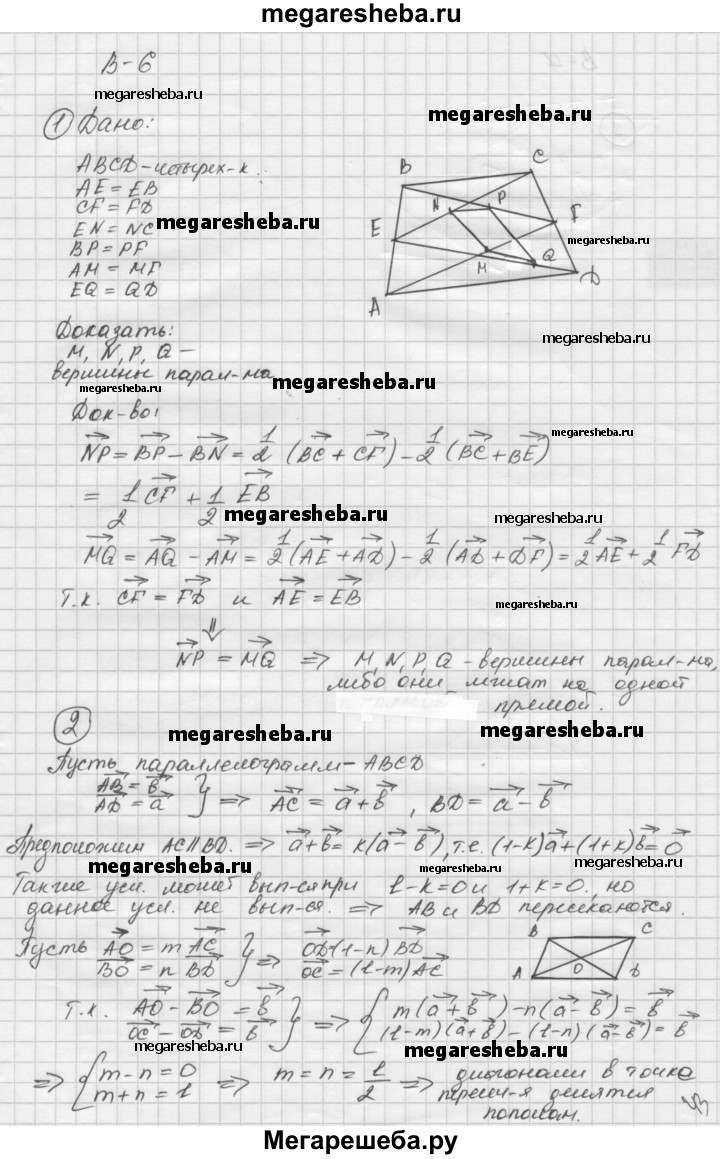 megaresheba.ru
В-6
megaresheba.ru
① Дано:
megaresheba.ru
ABCD-четырех-к.
AE = EB
CF = FD
megaresheba.ru
EN = NC
BP = PF
AM = MF
EQ = QD
B
C
N
P
E
F
megaresheba.ru
M
Q
D
A
Доказать:
megaresheba.ru
M, N, P, Q –
вершины парал-ма
megaresheba.ru
megaresheba.ru
Док-во:
megaresheba.ru
NP = BP – BN = 1/2 (BC + CF) – 1/2 (BC + BE)
megaresheba.ru
= 1/2 CF + 1/2 EB
megaresheba.ru
megaresheba.ru
MQ = AQ – AM = 1/2 (AE + AD) – 1/2 (AD + DF) = 1/2 AE + 1/2 FD
Т.к. CF = FD и AE = EB
megaresheba.ru
⇓
NP = MQ ⇒ M, N, P, Q – вершины парал-ма,
либо они лежат на одной
прямой.
②
megaresheba.ru
megaresheba.ru
Пусть параллелограмм – ABCD
AB = b
AD = a } ⇒ AC = a + b , BD = a – b
Предположим AC || BD. ⇒ a + b = k(a – b), т.е. (1-k)a + (1+k)b = 0
megaresheba.ru
megaresheba.ru
Такие усл. может вып-ся при 1-k=0 и 1+k=0, но
данное усл. не вып-ся. ⇒ AB и BD пересекаются.
Пусть AO = m AC
BO = n BD } ⇒ OD=(1-n) BD
OC = (1-m) AC
B
C
O
A
D
megaresheba.ru
Т.к. AO – BO = b
OC – OD = b } ⇒ { m(a + b) – n(a – b) = b
(1-m)(a+b) – (1-n)(a-b) = b
megaresheba.ru
megaresheba.ru
⇒ { m-n = 0
m+n = 1 ⇒ m = n = 1/2 ⇒ диагонали в точке
пересеч-я делятся
пополам.
43
Мегарешеба.ру